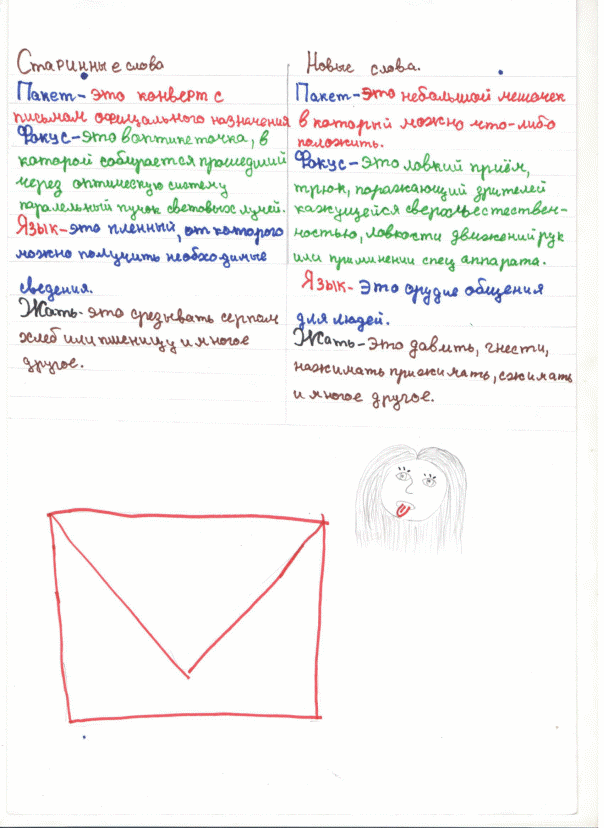 Старинные слова
Пакет- это конверт с
письмам официального назначения
Фокус-это воптикеточка, в
которой собирается прошедший
через оптическую систему
паралельный пучок световых лучей.
Язык-это пленный, от которого
можно получить необходимые
сведения.
Жать-это срезывать серпом
хлеб или пшеницу и многое
другое.
Новые слова.
Пакет-это небольшой мешочек
в которпй можно что-либо
положить.
Фокус-Это ловкий приём,
трюк, поражающий зрителей
кажущейся сверхъестествен-
ностью, ловкости движений рук
или приминении спец аппарата.
Язык- Это орудие общения
для людей.
Жать-Это давить, гнести,
нажимать прижимать, сжимать
и многое другое.